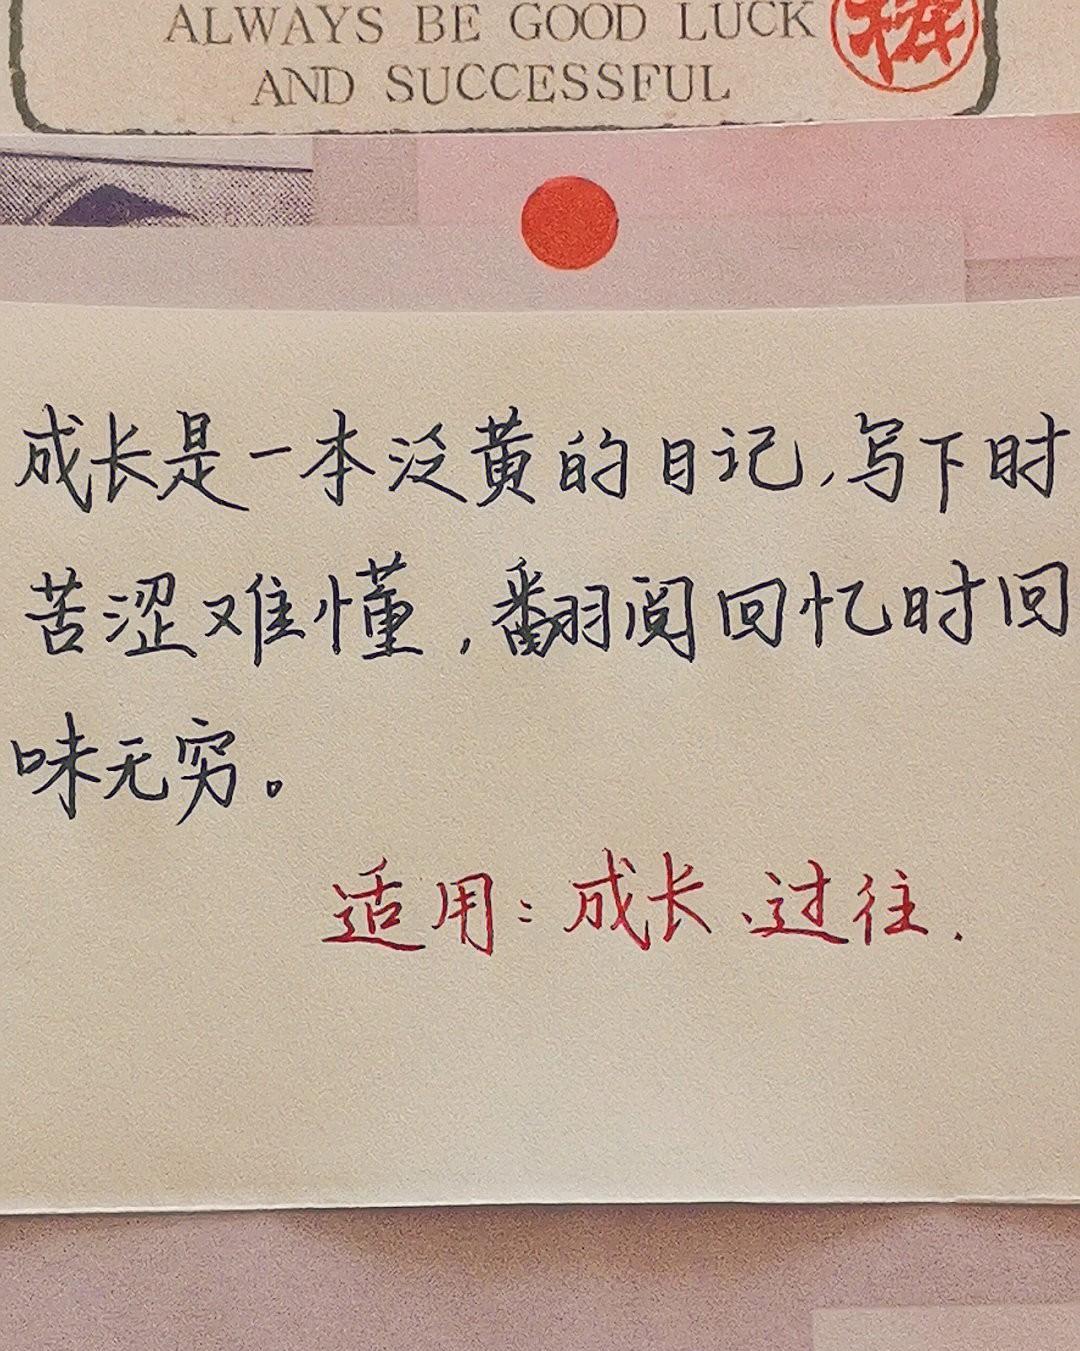 ALWAYS BE GOOD LUCK
AND SUCCESSFUL
成长是一本泛黄的日记,写下时
苦涩难懂,翻阅回忆时回
味无穷。
适用:成长、过往.